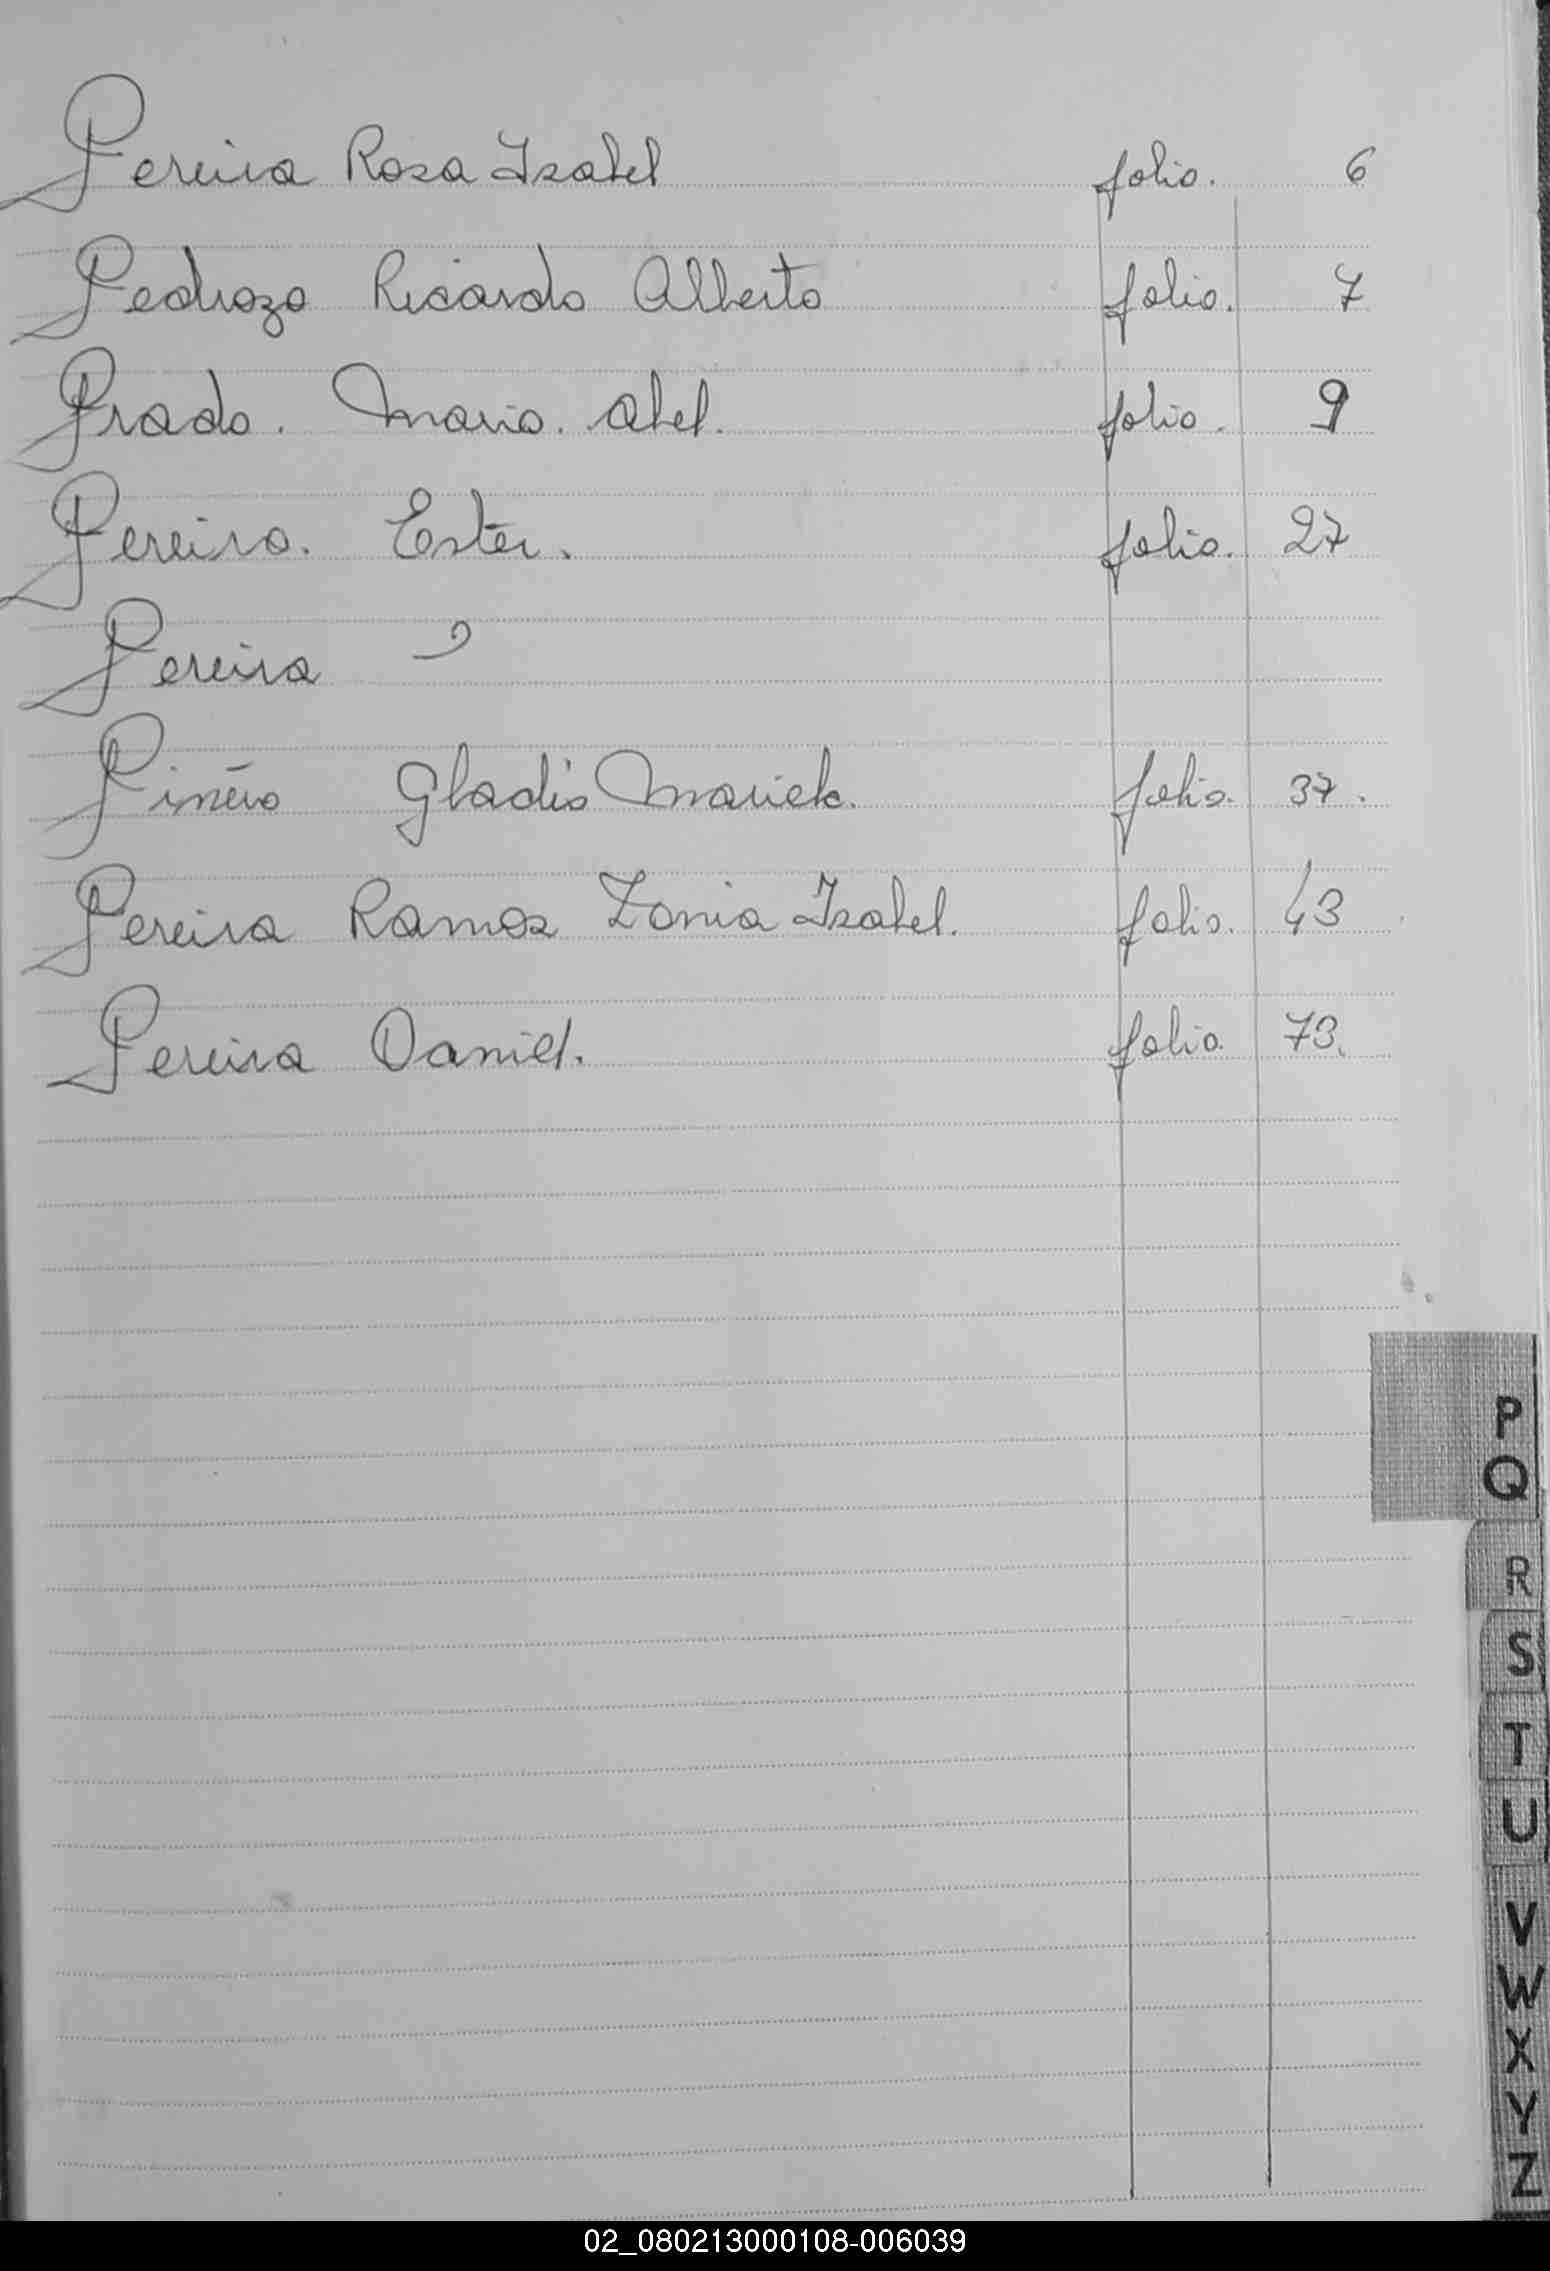 Pereira Rosa Isabel folio. 6
Pedrozo Ricardo Alberto folio. 7
Prado. Mario. Abel. folio. 9
Pereira. Ester. folio. 27
Pereira
Piñeiro Gladis Mariela. folio. 37.
Pereira Ramos Zonia Isabel. folio. 43
Pereira Daniel. folio 73.
P
Q
R
S
T
U
V
W
X
Y
Z
02_080213000108-006039